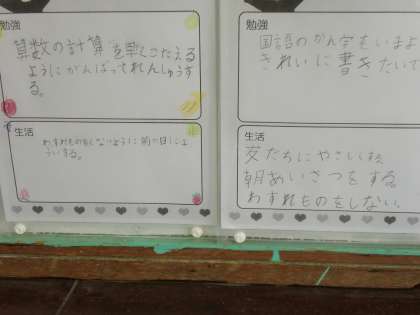 勉強
算数の計算を早くこたえる
ようにがんばってれんしゅうす
る。
生活
わすれものをしないように前の日によ
ういする。
勉強
国語のかん字をいまよ
きれいに書きたいで
生活
友だちにやさしい
朝あいさつをする。
わすれものをしない。